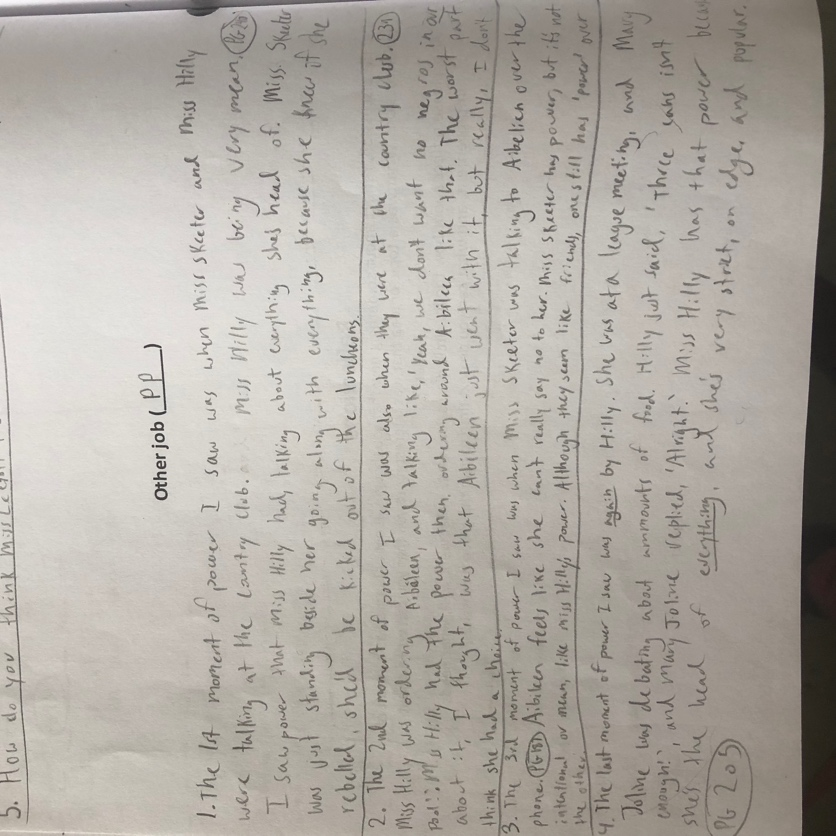 5. How do you think Miss
Other job ( PP )
1. The 1st moment of power I saw was when Miss Skeeter and Miss Hilly
were talking at the contry club. Miss Hilly was being very mean.
I saw power that Miss Hilly had, talking about everything shes head of. Miss. Skeeter
was just standing beside her going along with everything, because she knew if she
rebelled, she'd be kicked out of the luncheons.
2. The 2nd moment of power I saw was also when they were at the country club. 234
Miss Hilly was ordering Aibileen, and talking like, 'Yeah, we dont want no negros in our
pool'. Miss Hilly had the power then, ordering around Aibileen like that. The worst part
about it, I thought, was that Aibileen just went with it, but really, I dont
think she had a choice.
3. The 3rd moment of power I saw was when Miss Skeeter was talking to Aibelien over the
phone. Aibileen feels like she cant really say no to her. Miss Skeeter has power, but it's not
intentional or mean, like miss Hilly's power. Although they seem like friends, one still has 'power' over
the other.
4. The last moment of power I saw was again by Hilly. She was at a league meeting, and Mary
Joline was debating about ammounts of food. Hilly just said, 'Three cans isnt
enough!', and Mary Joline replied, 'Alright.' Miss Hilly has that power
shes the head of everything, and she's very strict, on edge, and popular.
PG 205